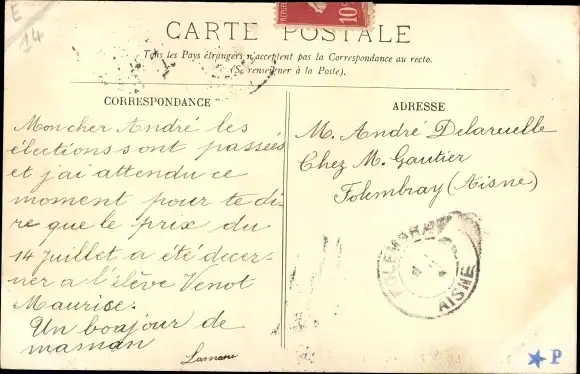 E
14
CARTE POSTALE
10
Tous les Pays étrangers n'acceptent pas la Correspondance au recto.
(Se renseigner à la Poste).
CORRESPONDANCE
Mon cher André les
élections sont passées
et j'ai attendu ce
moment pour te di
re que le prix du
14 juillet a été décer
ner a l'élève Venot
Maurice.
Un boajour de
maman
ADRESSE
M. André Delaruelle
Chez M. Gautier
Folembray (Aisne)
FOLEMBRAY
AISNE
P